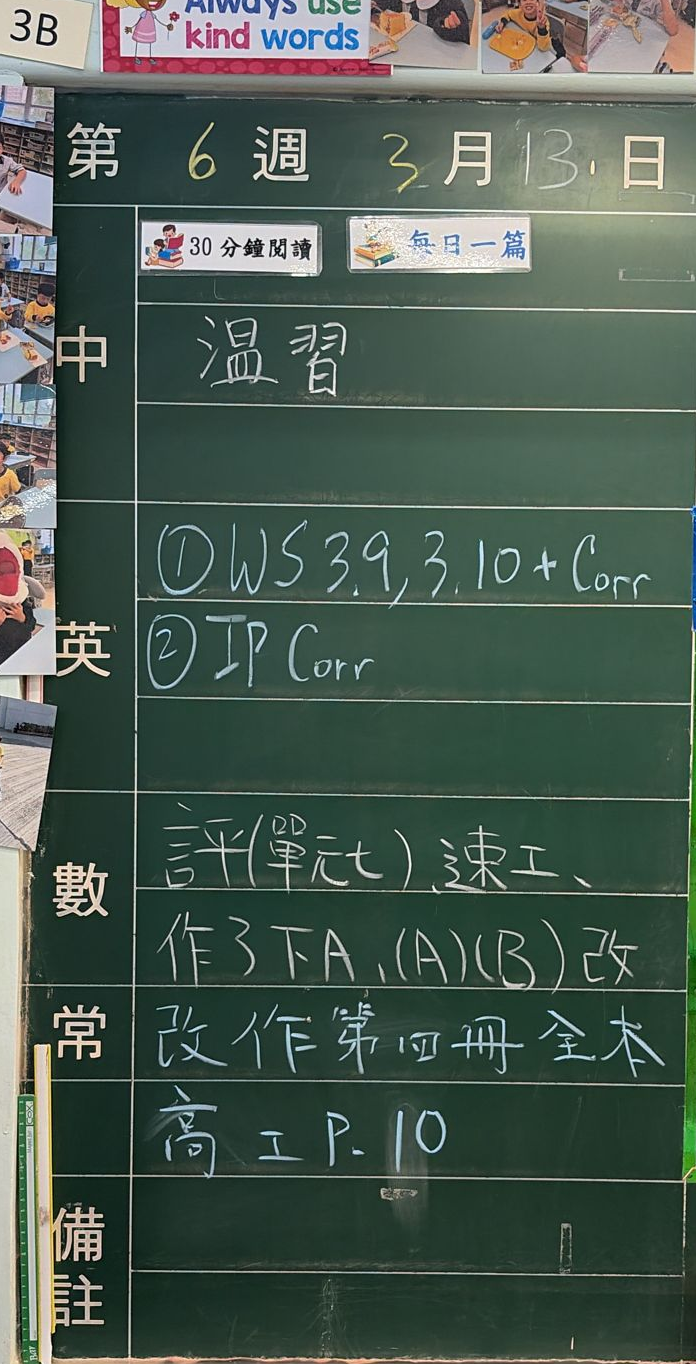 3B
Always use
kind words
第 6 週 3 月 13 日
30 分鐘閱讀
每日一篇
中
温習
英
①WS 3.9, 3.10 + Corr
②IP Corr
數
評(單元七)、速工、
作3下A、(A)(B)改
常
改作第四冊全本
高工P.10
備註